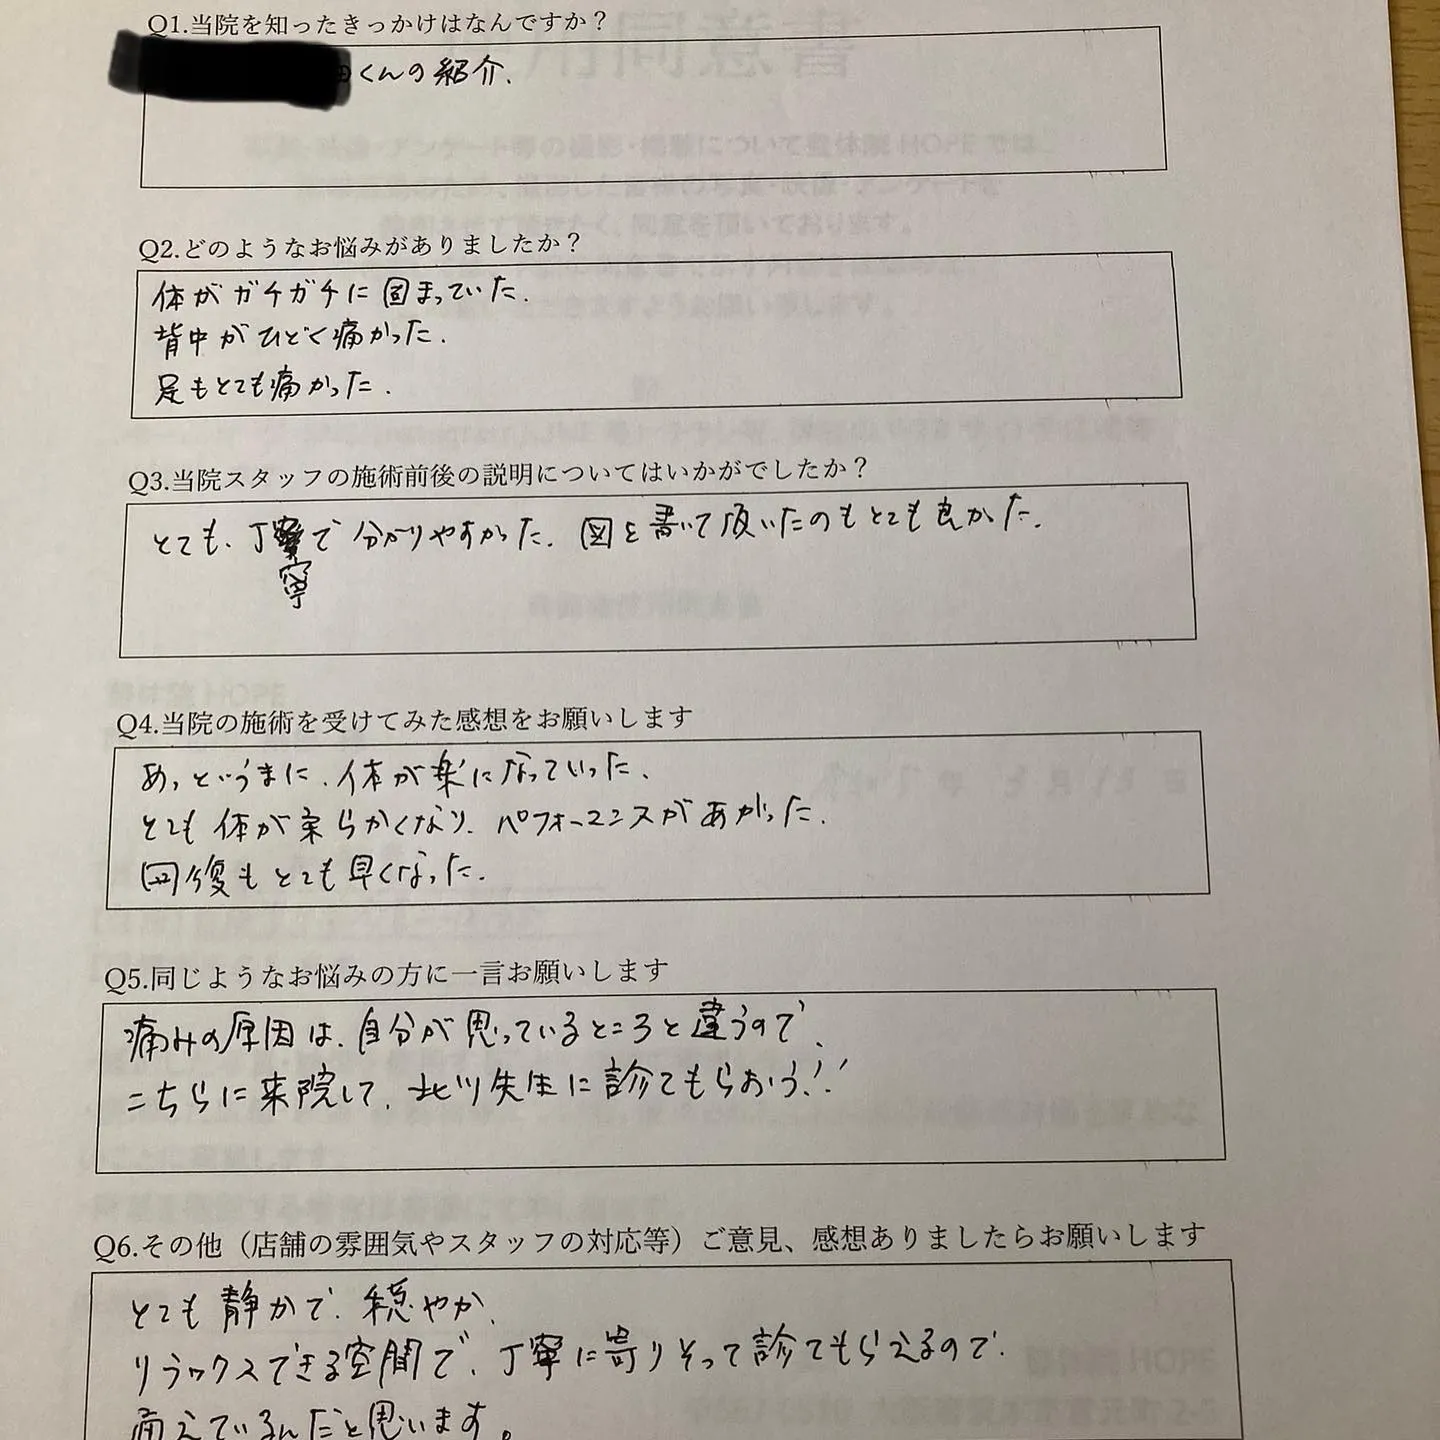 Q1.当院を知ったきっかけはなんですか？
くんの紹介.
Q2.どのようなお悩みがありましたか？
体がガチガチに固まっていた.
背中がひどく痛かった.
足もとても痛かった.
Q3.当院スタッフの施術前後の説明についてはいかがでしたか？
とても、丁寧で分かりやすかった. 図を書いて頂いたのもとても良かった.
寧
Q4.当院の施術を受けてみた感想をお願いします
あっというまに、体が楽になっていった.
とても体が柔らかくなり、パフォーマンスがあがった.
回復もとても早くなった.
Q5.同じようなお悩みの方に一言お願いします
痛みの原因は、自分が思っているところと違うので、
こちらに来院して、北川先生に診てもらおう!!
Q6.その他（店舗の雰囲気やスタッフの対応等）ご意見、感想ありましたらお願いします
とても静かで、穏やか、
リラックスできる空間で、丁寧に寄りそって診てもらえるので、
えているんだと思います。